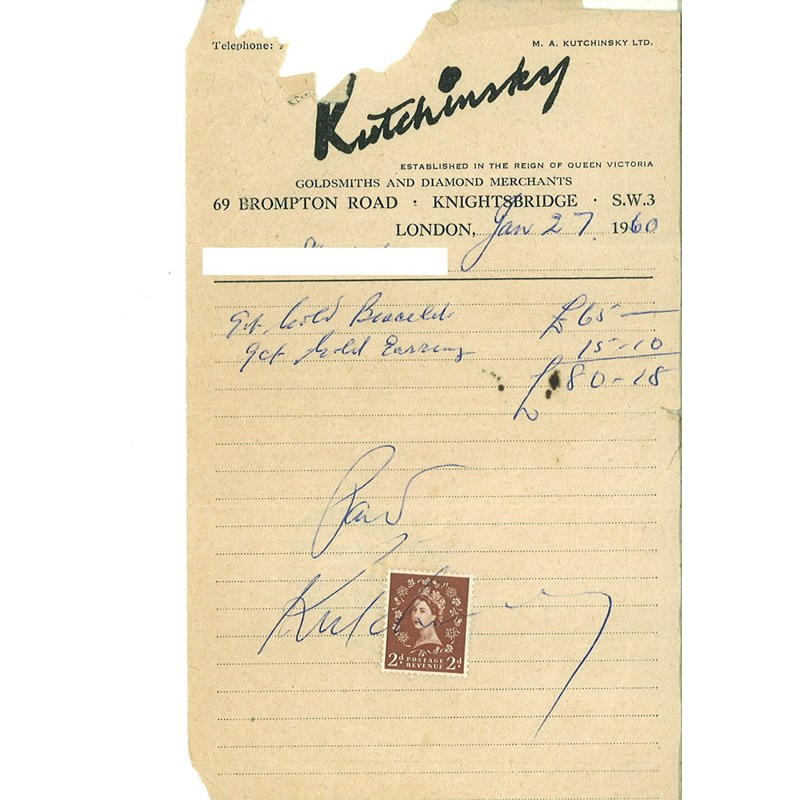 Telephone:
M. A. KUTCHINSKY LTD.
Kutchinsky
ESTABLISHED IN THE REIGN OF QUEEN VICTORIA
GOLDSMITHS AND DIAMOND MERCHANTS
69 BROMPTON ROAD · KNIGHTSBRIDGE · S.W.3
LONDON, Jan 27. 1960
9ct Gold Bracelet £65 —
9ct Gold Earring 15-10
£80-
Paid
Kutchinsky
2D POSTAGE REVENUE 2D